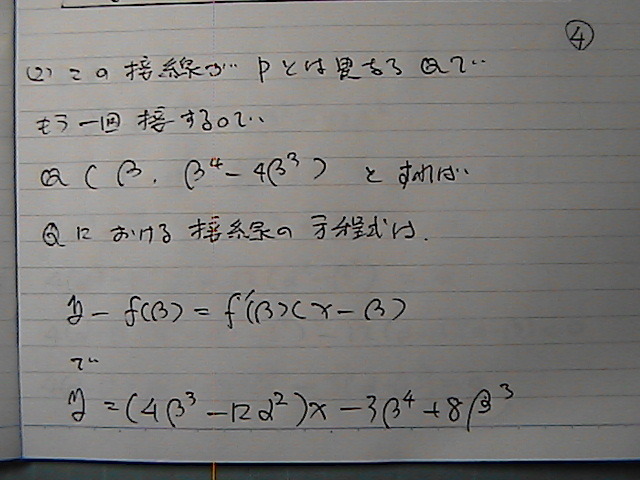 ④
(2) この接線が Pとは異なる Qで
もう一回 接するので
Q ( β, β⁴ - 4β³ ) と すれば
Q における 接線の 方程式は.
y - f(β) = f'(β)(x - β)
で
y = (4β³ - 12α²)x - 3β⁴ + 8β³